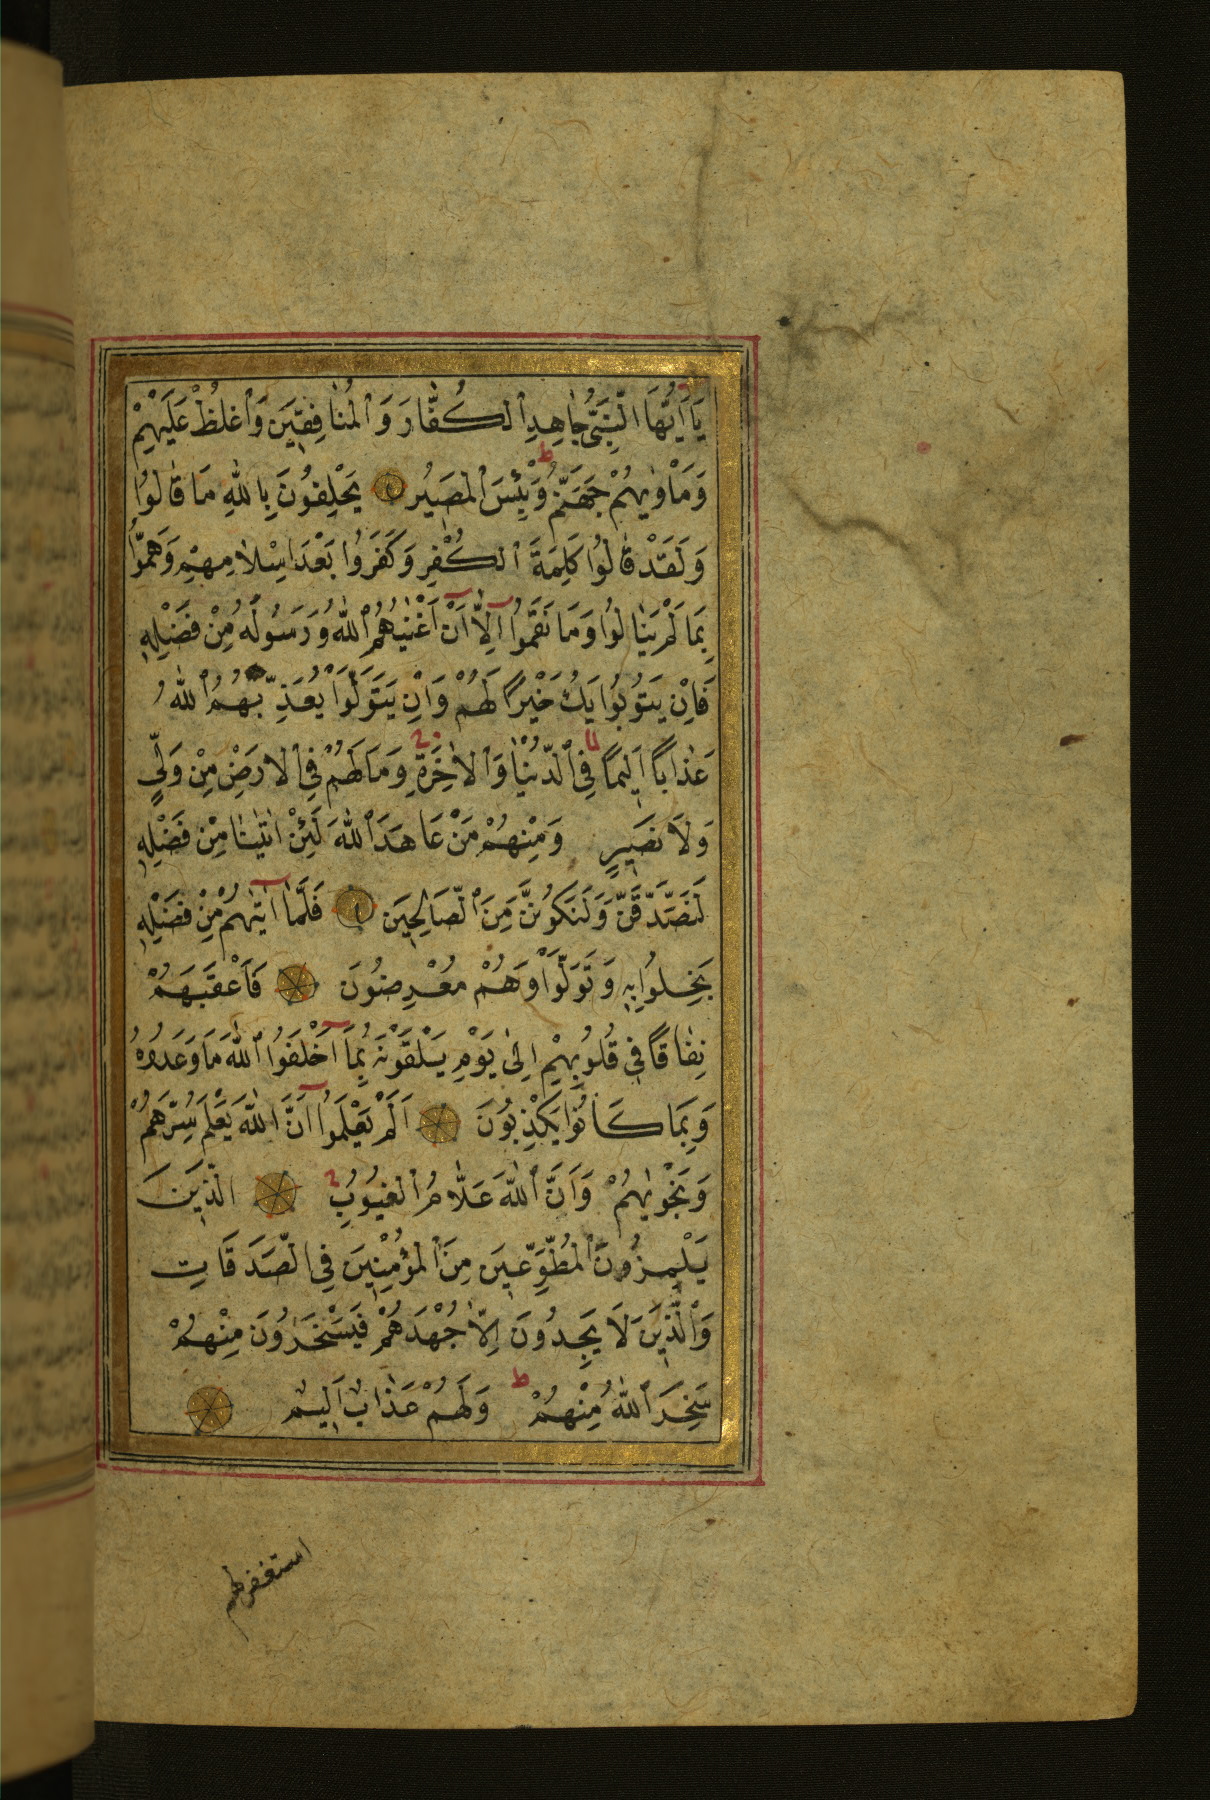 يَا اَيُّهَا النَّبِيُّ جَاهِدِ الْكُفَّارَ وَالْمُنَافِقِينَ وَاغْلُظْ عَلَيْهِمْ
وَمَأْوٰيهُمْ جَهَنَّمُ ط وَبِئْسَ الْمَصِيرُ يَحْلِفُونَ بِاللّٰهِ مَا قَالُوا
وَلَقَدْ قَالُوا كَلِمَةَ الْكُفْرِ وَكَفَرُوا بَعْدَ اِسْلَامِهِمْ وَهَمُّوا
بِمَا لَمْ يَنَالُوا وَمَا نَقَمُوا اِلَّا اَنْ اَغْنٰيهُمُ اللّٰهُ وَرَسُولُهُ مِنْ فَضْلِهِ
فَاِنْ يَتُوبُوا يَكُ خَيْرًا لَهُمْ وَاِنْ يَتَوَلَّوْا يُعَذِّبْهُمُ اللّٰهُ
عَذَابًا اَلِيمًا فِي الدُّنْيَا وَالْاٰخِرَةِ وَمَا لَهُمْ فِي الْاَرْضِ مِنْ وَلِيٍّ
وَلَا نَصِيرٍ وَمِنْهُمْ مَنْ عَاهَدَ اللّٰهَ لَئِنْ اٰتٰينَا مِنْ فَضْلِهِ
لَنَصَّدَّقَنَّ وَلَنَكُونَنَّ مِنَ الصَّالِحِينَ فَلَمَّا اٰتٰيهُمْ مِنْ فَضْلِهِ
بَخِلُوا بِهِ وَتَوَلَّوْا وَهُمْ مُعْرِضُونَ فَاَعْقَبَهُمْ
نِفَاقًا فِي قُلُوبِهِمْ اِلٰى يَوْمِ يَلْقَوْنَهُ بِمَا اَخْلَفُوا اللّٰهَ مَا وَعَدُوهُ
وَبِمَا كَانُوا يَكْذِبُونَ اَلَمْ يَعْلَمُوا اَنَّ اللّٰهَ يَعْلَمُ سِرَّهُمْ
وَنَجْوٰيهُمْ وَاَنَّ اللّٰهَ عَلَّامُ الْغُيُوبِ الَّذِينَ
يَلْمِزُونَ الْمُطَّوِّعِينَ مِنَ الْمُؤْمِنِينَ فِي الصَّدَقَاتِ
وَالَّذِينَ لَا يَجِدُونَ اِلَّا جُهْدَهُمْ فَيَسْخَرُونَ مِنْهُمْ
سَخِرَ اللّٰهُ مِنْهُمْ ط وَلَهُمْ عَذَابٌ اَلِيمٌ
استغفر لهم